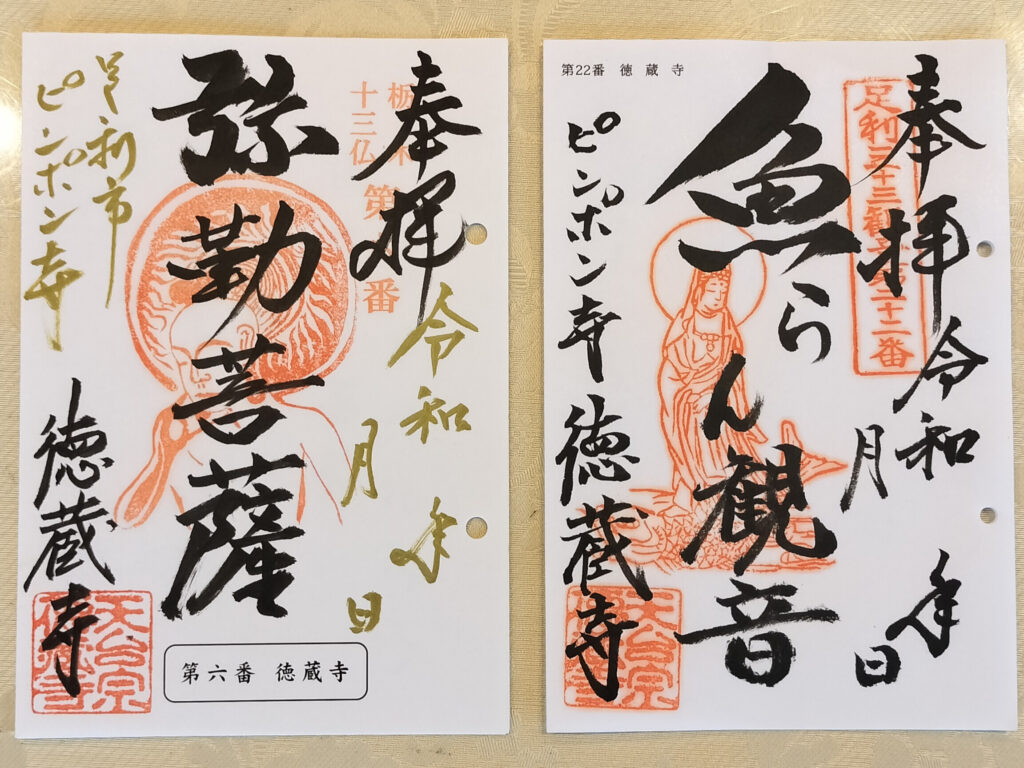 奉拝
令和 年
月 日
栃木
十三仏 第 番
弥勒菩薩
足利市
ピンポン寺
徳蔵寺
天台宗
第六番 徳蔵寺
第22番 徳蔵寺
奉拝
令和 年
月 日
足利三十三観音第二十二番
魚らん観音
ピンポン寺
徳蔵寺
天台宗